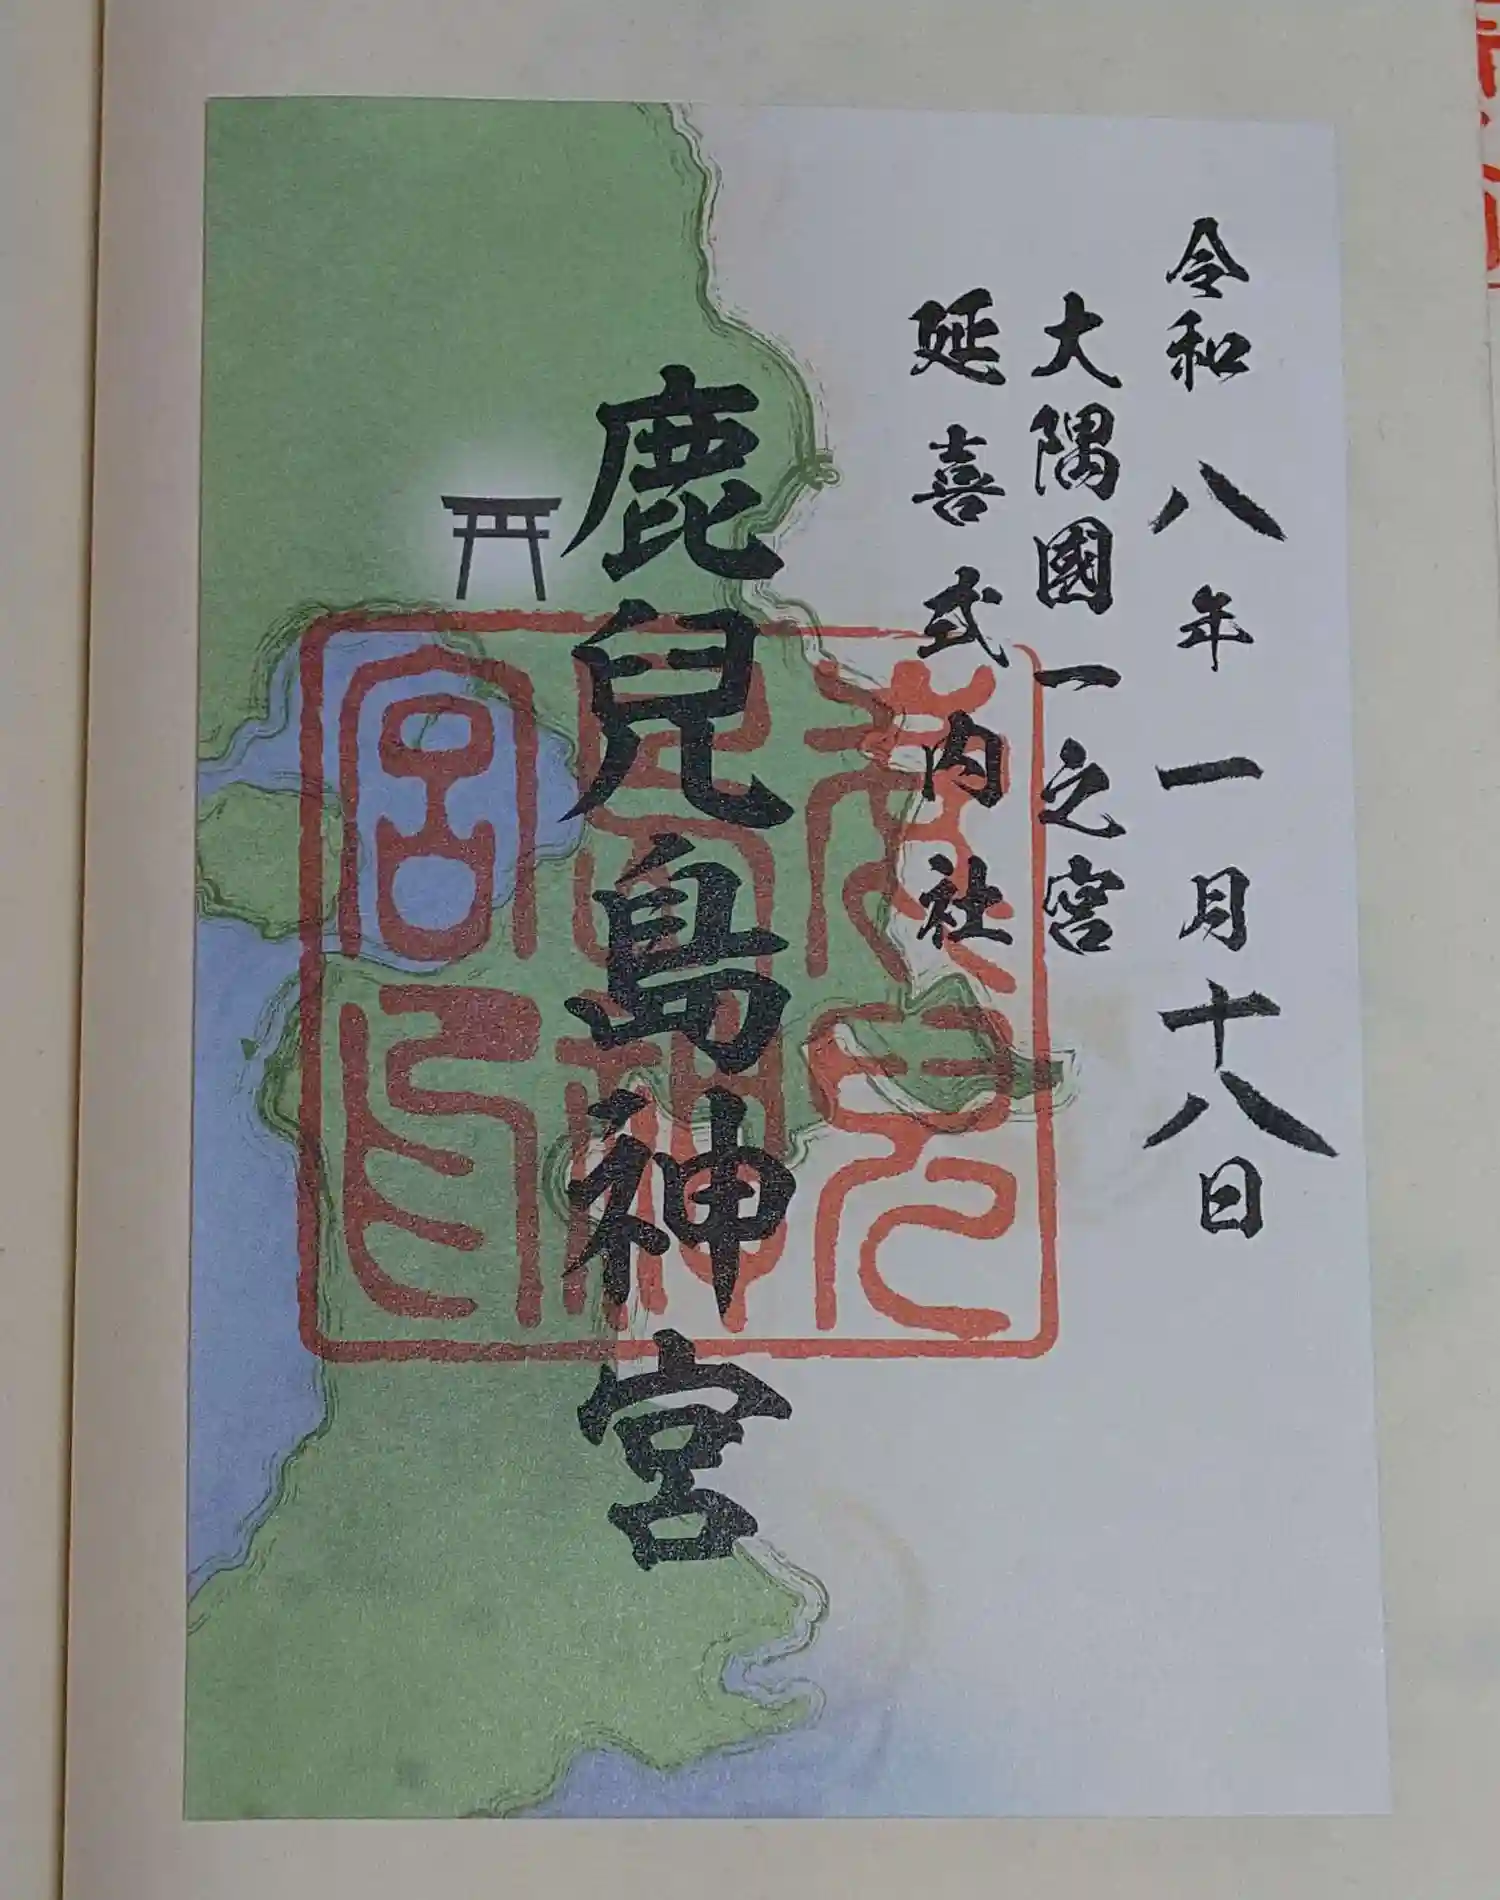 令和八年一月十八日
大隅國一之宮
延喜式内社
鹿兒島神宮